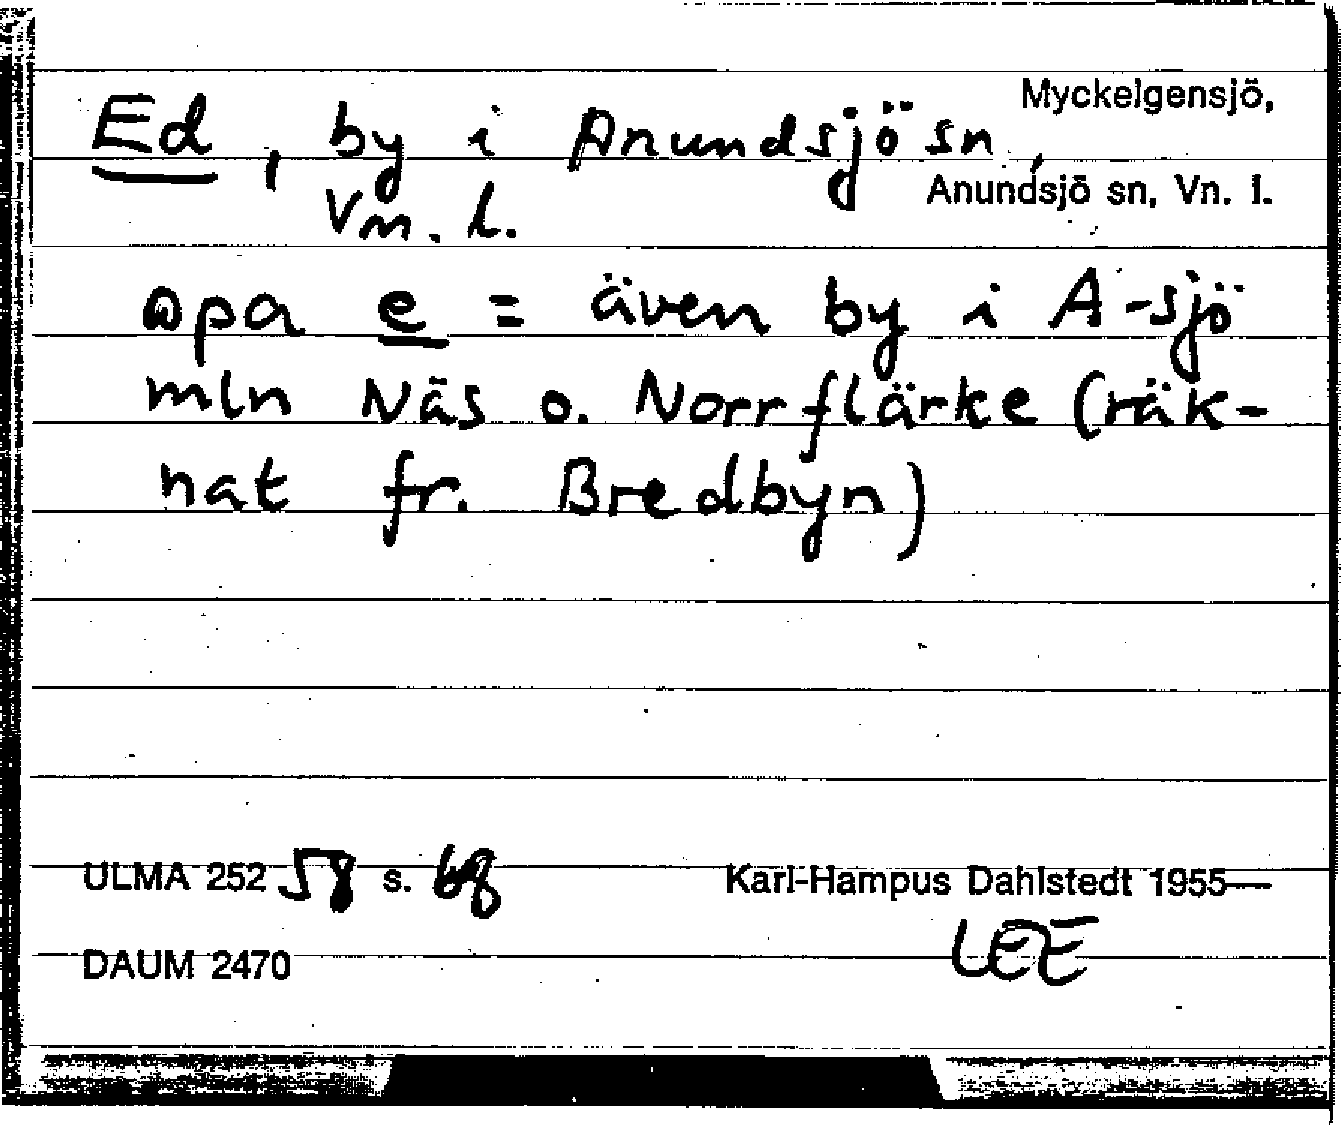 Myckelgensjö,
Ed, by i Anundsjö sn,
Anundsjö sn, Vn. l.
Vn. l.
opa e = även by i A-sjö
mln Näs o. Norrflärke (räk-
nat fr. Bredbyn)
ULMA 252 58 s. 68 Karl-Hampus Dahlstedt 1955—
LEE
DAUM 2470